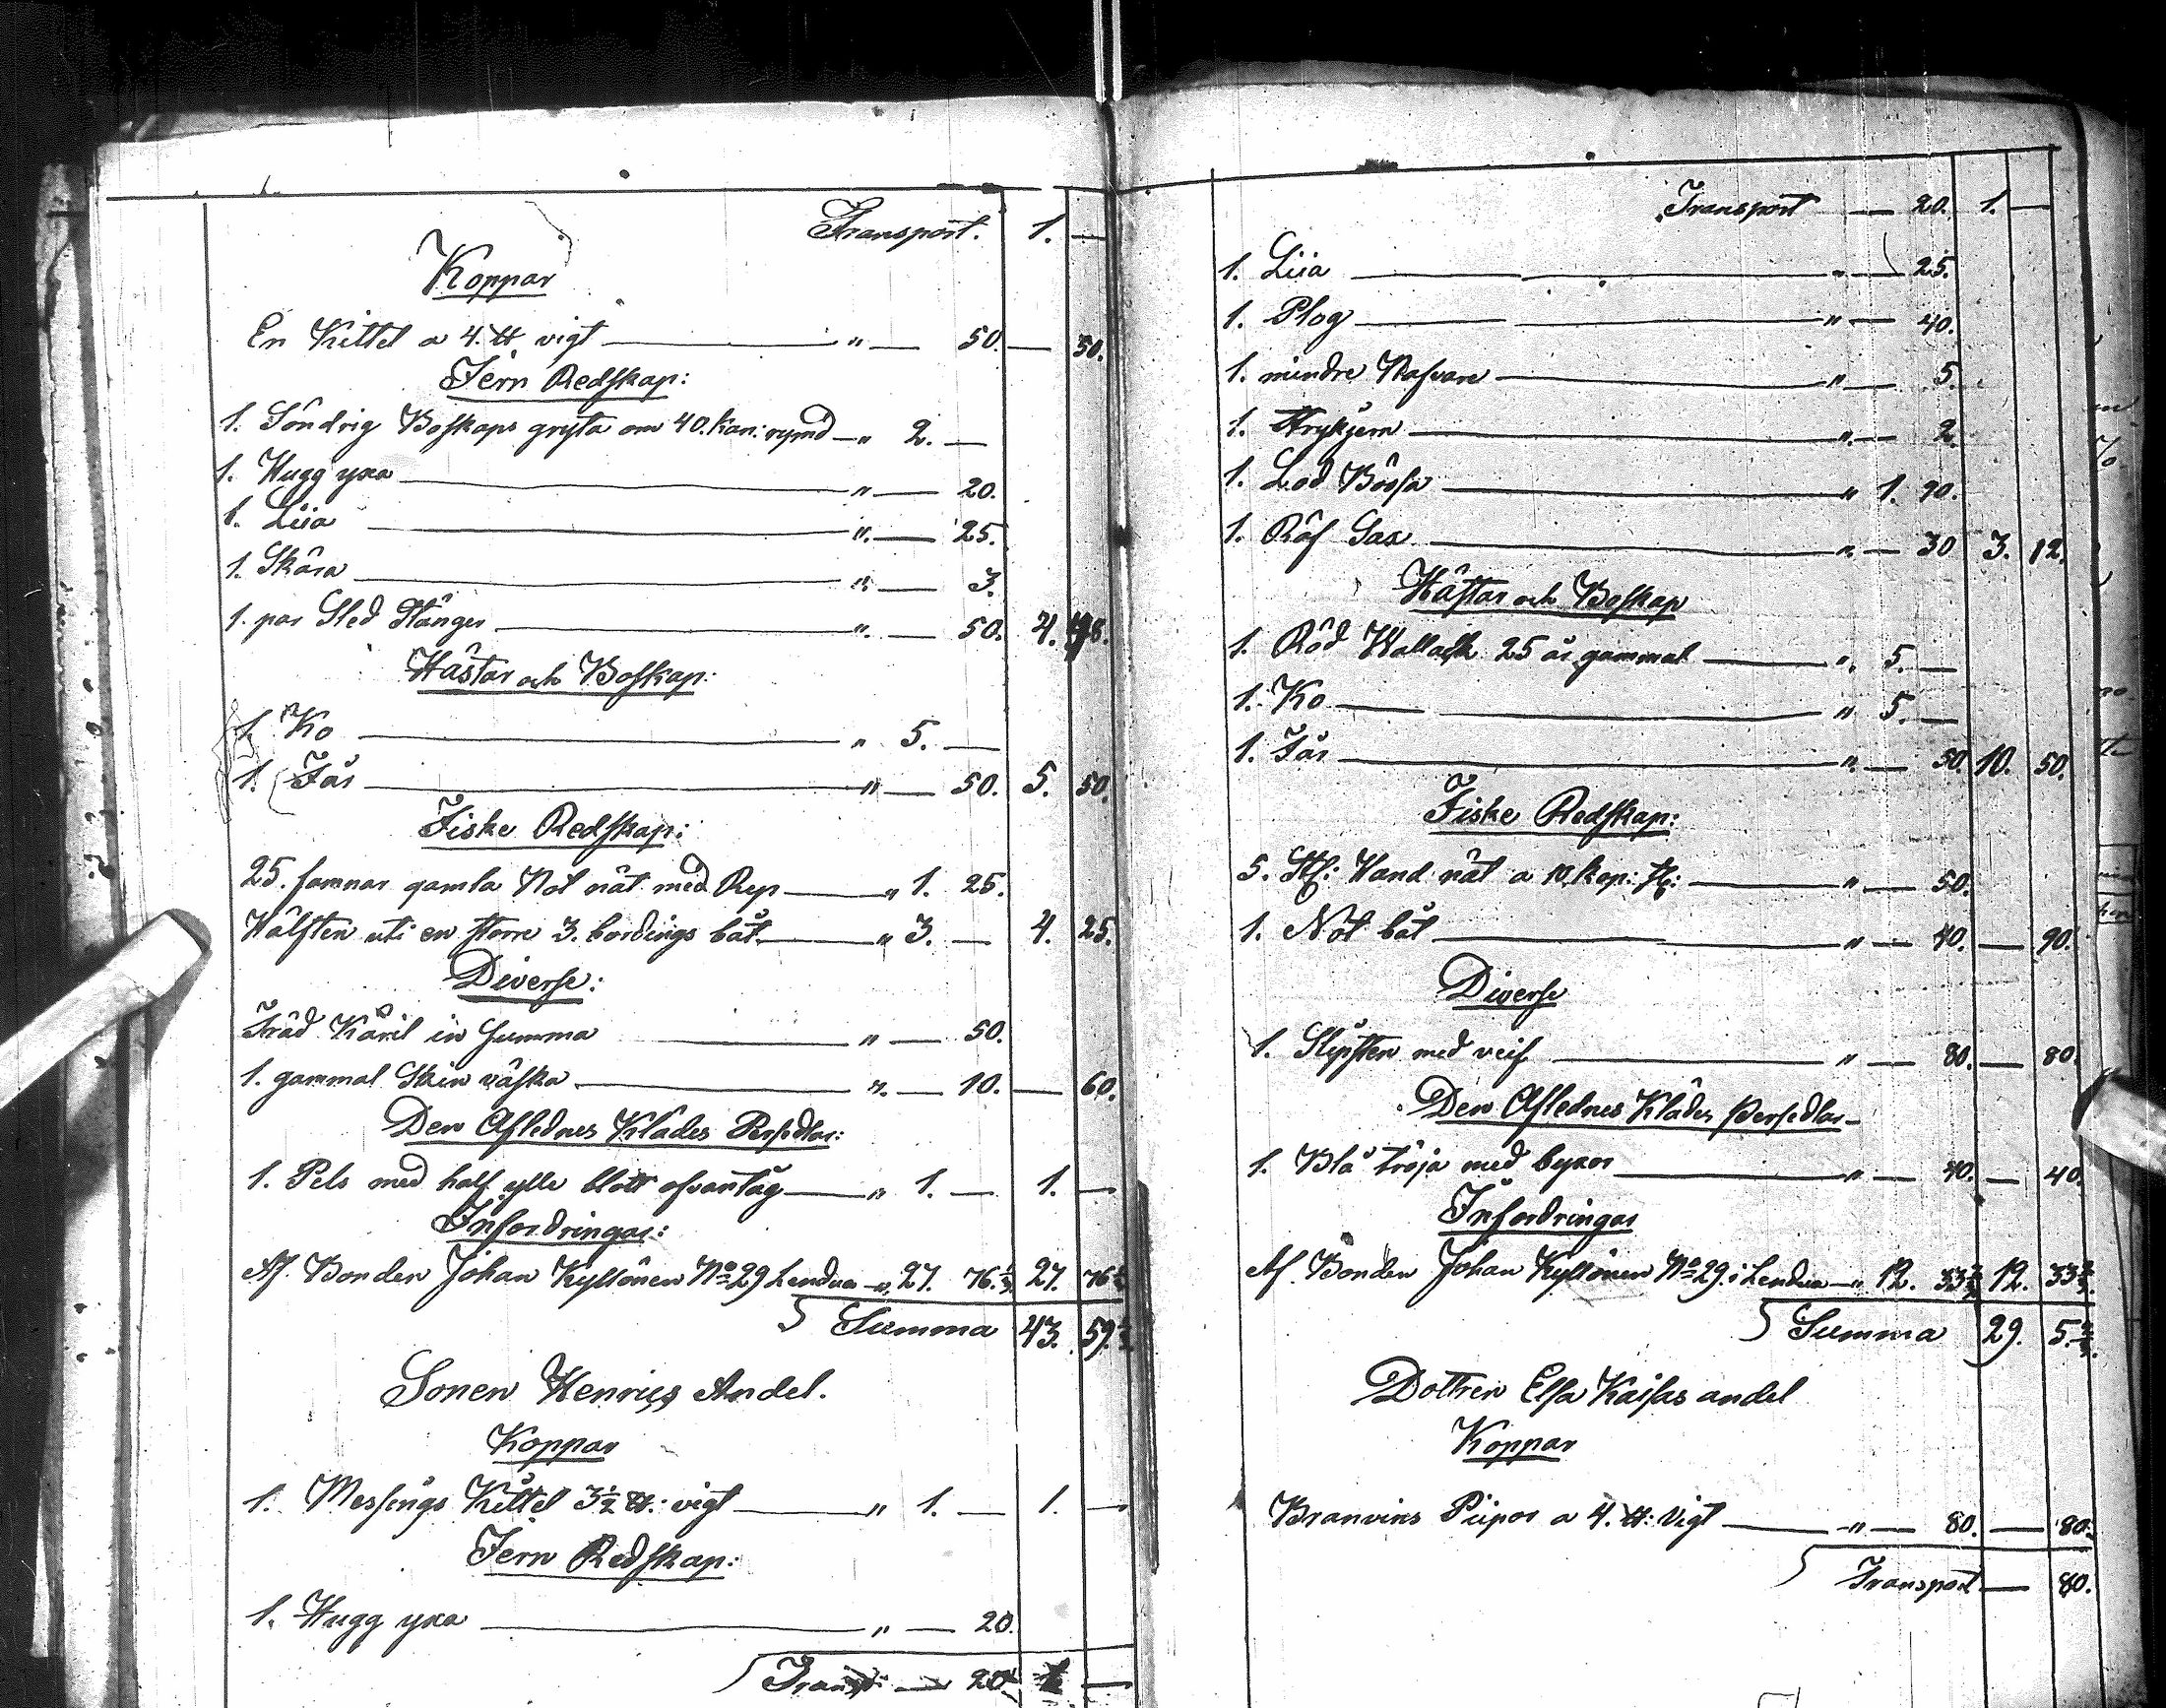 Transport. 1. —
Koppar
En Kittel a 4. ℔ vigt — " — 50. — 50.
Jern Redskap:
1. Söndrig Boskaps gryta om 40. kan: rymd — " 2. —
1. Hugg yxa — " — 20.
1. Liia — " — 25.
1. Skära — " — 3.
1. par Sled Stänger — " — 50. 2. 98.
Hästar och Boskap:
1. Ko — " 5. —
1. Får — " — 50. 5. 50.
Fiske Redskap:
25. famnar gamla Not nät med Rep — " 1. 25.
Hälften uti en större 3. bordings båt — " 3. — 4. 25.
Diverse:
Träd Käril in Summa — " — 50.
1. gammal Skin väska — " — 10. — 60.
Den Aflednes Klädes Persedlar:
1. Pels med half ylle blått ofvantåg — " 1. — 1. —
Infordringar:
Af Bonden Johan Kyllönen No 29 Lendua — " 27. 76. 27. 76
Summa 43. 59.
Sonen Henrics Andel.
Koppar
1. Messings Kittel 3½ ℔: vigt — " 1. — 1. —
Jern Redskap:
1. Hugg yxa — " — 20.
Transp: — 20. 1. —
Transport — 20. 1. —
1. Liia — " — 25.
1. Plog — " — 40.
1. mindre Nafvare — " — 5.
1. Strykjern — " — 2.
1. Lod Bössa — " 1. 90.
1. Räf Sax — " — 30 3. 12.
Hästar och Boskap
1. Röd Wallack 25 år gammal — " 5. —
1. Ko — " 5. —
1. Får — " — 50. 10. 50.
Fiske Redskap:
5. St: Hand nät a 10. kop: St: — " — 50.
1. Not båt — " — 40. — 90.
Diverse
1. Slipsten med veif — " — 80. — 80.
Den Aflednes Klädes Persedlar
1. Blå tröja med byxor — " — 40. — 40.
Infordringar
Af Bonden Johan Kyllönen No 29. i Lendua — " 12. 33 12. 33
Summa 29. 5.
Dottren Elsa Kaisas andel
Koppar
Branvins Piipor a 4. ℔: vigt — " — 80. — 80.
Transport — 80.